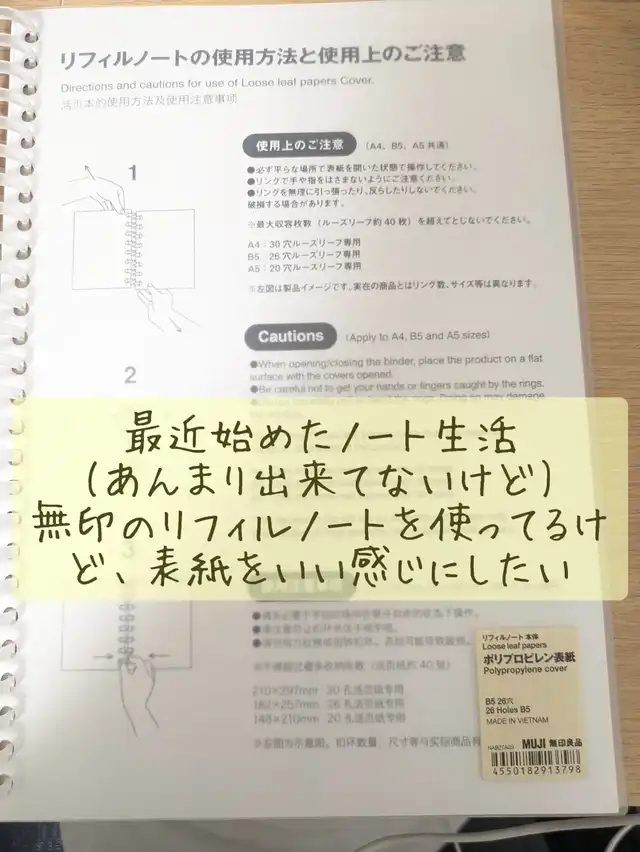 リフィルノートの使用方法と使用上のご注意
Directions and cautions for use of Loose leaf papers Cover.
活页本的使用方法及使用注意事项
使用上のご注意 (A4、B5、A5 共通)
1
●必ず平らな場所で表紙を開いた状態で操作してください。
●リングで手や指をはさまないようにご注意ください。
●リングを無理に引っ張ったり、反らしたりしないでください。
破損する場合があります。
※最大収容枚数(ルーズリーフ約40枚)を超えてとじないでください。
A4:30穴ルーズリーフ専用
B5:26穴ルーズリーフ専用
A5:20穴ルーズリーフ専用
※左図は製品イメージです。実在の商品とはリング数、サイズ等は異なります。
Cautions (Apply to A4, B5 and A5 sizes)
2
●When opening/closing the binder, place the product on a flat
surface with the covers opened.
●Be careful not to get your hands or fingers caught by the rings.
最近始めたノート生活
(あんまり出来てないけど)
無印のリフィルノートを使ってるけ
ど、表紙をいい感じにしたい
3
210×297mm 30 孔活页纸专用
182×257mm 26 孔活页纸专用
148×210mm 20 孔活页纸专用
リフィルノート 本体
Loose leaf papers
ポリプロピレン表紙
Polypropylene cover
B5 26穴
26 Holes B5
MADE IN VIETNAM
MUJI 無印良品
4550182913798